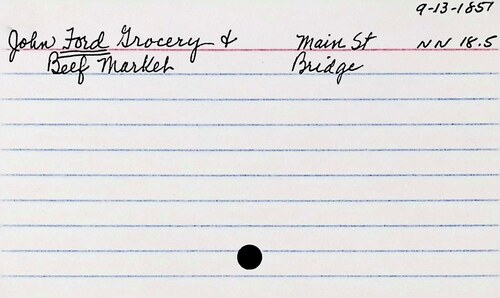 9-13-1851
John Ford Grocery & Main St NN 18.5
Beef Market Bridge